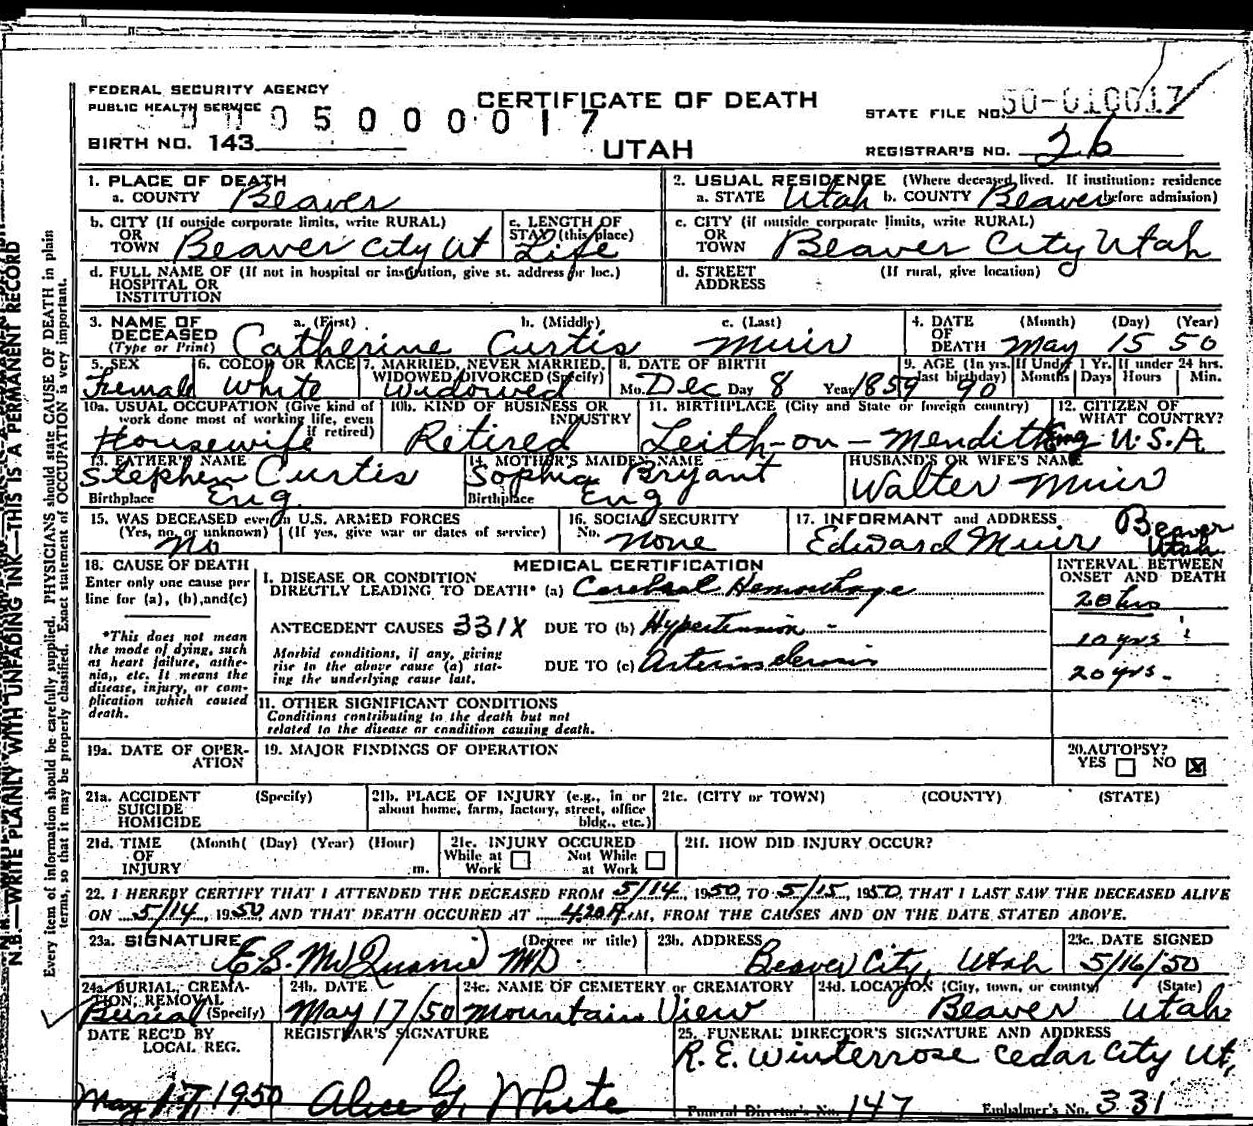 FEDERAL SECURITY AGENCY
PUBLIC HEALTH SERVICE
CERTIFICATE OF DEATH
UTAH
0 5 0 0 0 0 1 7
BIRTH NO. 143
STATE FILE NO. 50-010017
REGISTRAR'S NO. 26
1. PLACE OF DEATH
a. COUNTY Beaver
2. USUAL RESIDENCE (Where deceased lived. If institution: residence before admission)
a. STATE Utah b. COUNTY Beaver
b. CITY (If outside corporate limits, write RURAL)
OR TOWN Beaver City Ut
c. LENGTH OF STAY (this place) Life
c. CITY (if outside corporate limits, write RURAL)
OR TOWN Beaver City Utah
d. FULL NAME OF (If not in hospital or institution, give st. address or loc.)
HOSPITAL OR
INSTITUTION
d. STREET ADDRESS (If rural, give location)
3. NAME OF DECEASED (Type or Print)
a. (First) b. (Middly) c. (Last)
Catherine Curtis Muir
4. DATE OF DEATH (Month) (Day) (Year)
May 15 50
5. SEX Female
6. COLOR OR RACE White
7. MARRIED, NEVER MARRIED, WIDOWED DIVORCED (Specify) Widowed
8. DATE OF BIRTH
Mo. Dec Day 8 Year 1859
9. AGE (In yrs. last birthday) 90
If Under 1 Yr. Months Days
If under 24 hrs. Hours Min.
10a. USUAL OCCUPATION (Give kind of work done most of working life, even if retired) Housewife
10b. KIND OF BUSINESS OR INDUSTRY Retired
11. BIRTHPLACE (City and State or foreign country) Leith-on-Mendith Eng
12. CITIZEN OF WHAT COUNTRY? U.S.A
13. FATHER'S NAME Stephen Curtis
Birthplace Eng.
14. MOTHER'S MAIDEN NAME Sophia Bryant
Birthplace Eng
HUSBAND'S OR WIFE'S NAME Walter Muir
15. WAS DECEASED ever in U.S. ARMED FORCES
(Yes, no, or unknown) (If yes, give war or dates of service)
No
16. SOCIAL SECURITY
No. None
17. INFORMANT and ADDRESS
Edward Muir Beaver Utah
18. CAUSE OF DEATH
Enter only one cause per line for (a), (b), and (c)
*This does not mean the mode of dying, such as heart failure, asthenia, etc. It means the disease, injury, or complication which caused death.
MEDICAL CERTIFICATION
INTERVAL BETWEEN ONSET AND DEATH
I. DISEASE OR CONDITION
DIRECTLY LEADING TO DEATH* (a) Cerebral Hemorrhage 20 hrs
ANTECEDENT CAUSES 331X DUE TO (b) Hypertension 10 yrs
Morbid conditions, if any, giving rise to the above cause (a) stating the underlying cause last.
DUE TO (c) Arteriosclerosis 20 yrs.
11. OTHER SIGNIFICANT CONDITIONS
Conditions contributing to the death but not
related to the disease or condition causing death.
19a. DATE OF OPERATION
19. MAJOR FINDINGS OF OPERATION
20. AUTOPSY?
YES NO
21a. ACCIDENT (Specify)
SUICIDE
HOMICIDE
21b. PLACE OF INJURY (e.g., in or about home, farm, factory, street, office bldg., etc.)
21c. (CITY or TOWN) (COUNTY) (STATE)
21d. TIME OF INJURY (Month( (Day) (Year) (Hour) m.
21e. INJURY OCCURED
While at Work Not While at Work
21f. HOW DID INJURY OCCUR?
22. I HEREBY CERTIFY THAT I ATTENDED THE DECEASED FROM 5/14, 1950, TO 5/15, 1950, THAT I LAST SAW THE DECEASED ALIVE
ON 5/14, 1950, AND THAT DEATH OCCURED AT 4:20 A.M., FROM THE CAUSES AND ON THE DATE STATED ABOVE.
23a. SIGNATURE (Degree or title)
E.S. McQuarrie MD
23b. ADDRESS
Beaver City, Utah
23c. DATE SIGNED
5/16/50
24a. BURIAL, CREMATION, REMOVAL (Specify) Burial
24b. DATE May 17/50
24c. NAME OF CEMETERY or CREMATORY Mountain View
24d. LOCATION (City, town, or county) (State)
Beaver Utah
DATE REC'D BY LOCAL REG.
May 17, 1950
REGISTRAR'S SIGNATURE
Alice G. White
25. FUNERAL DIRECTOR'S SIGNATURE AND ADDRESS
R.E. Winterrose Cedar City Ut,
Funeral Director's No. 147 Embalmer's No. 331
N.B.—WRITE PLAINLY WITH UNFADING INK—THIS IS A PERMANENT RECORD
Every item of information should be carefully supplied. PHYSICIANS should state CAUSE OF DEATH in plain
terms, so that it may be properly classified. Exact statement of OCCUPATION is very important.